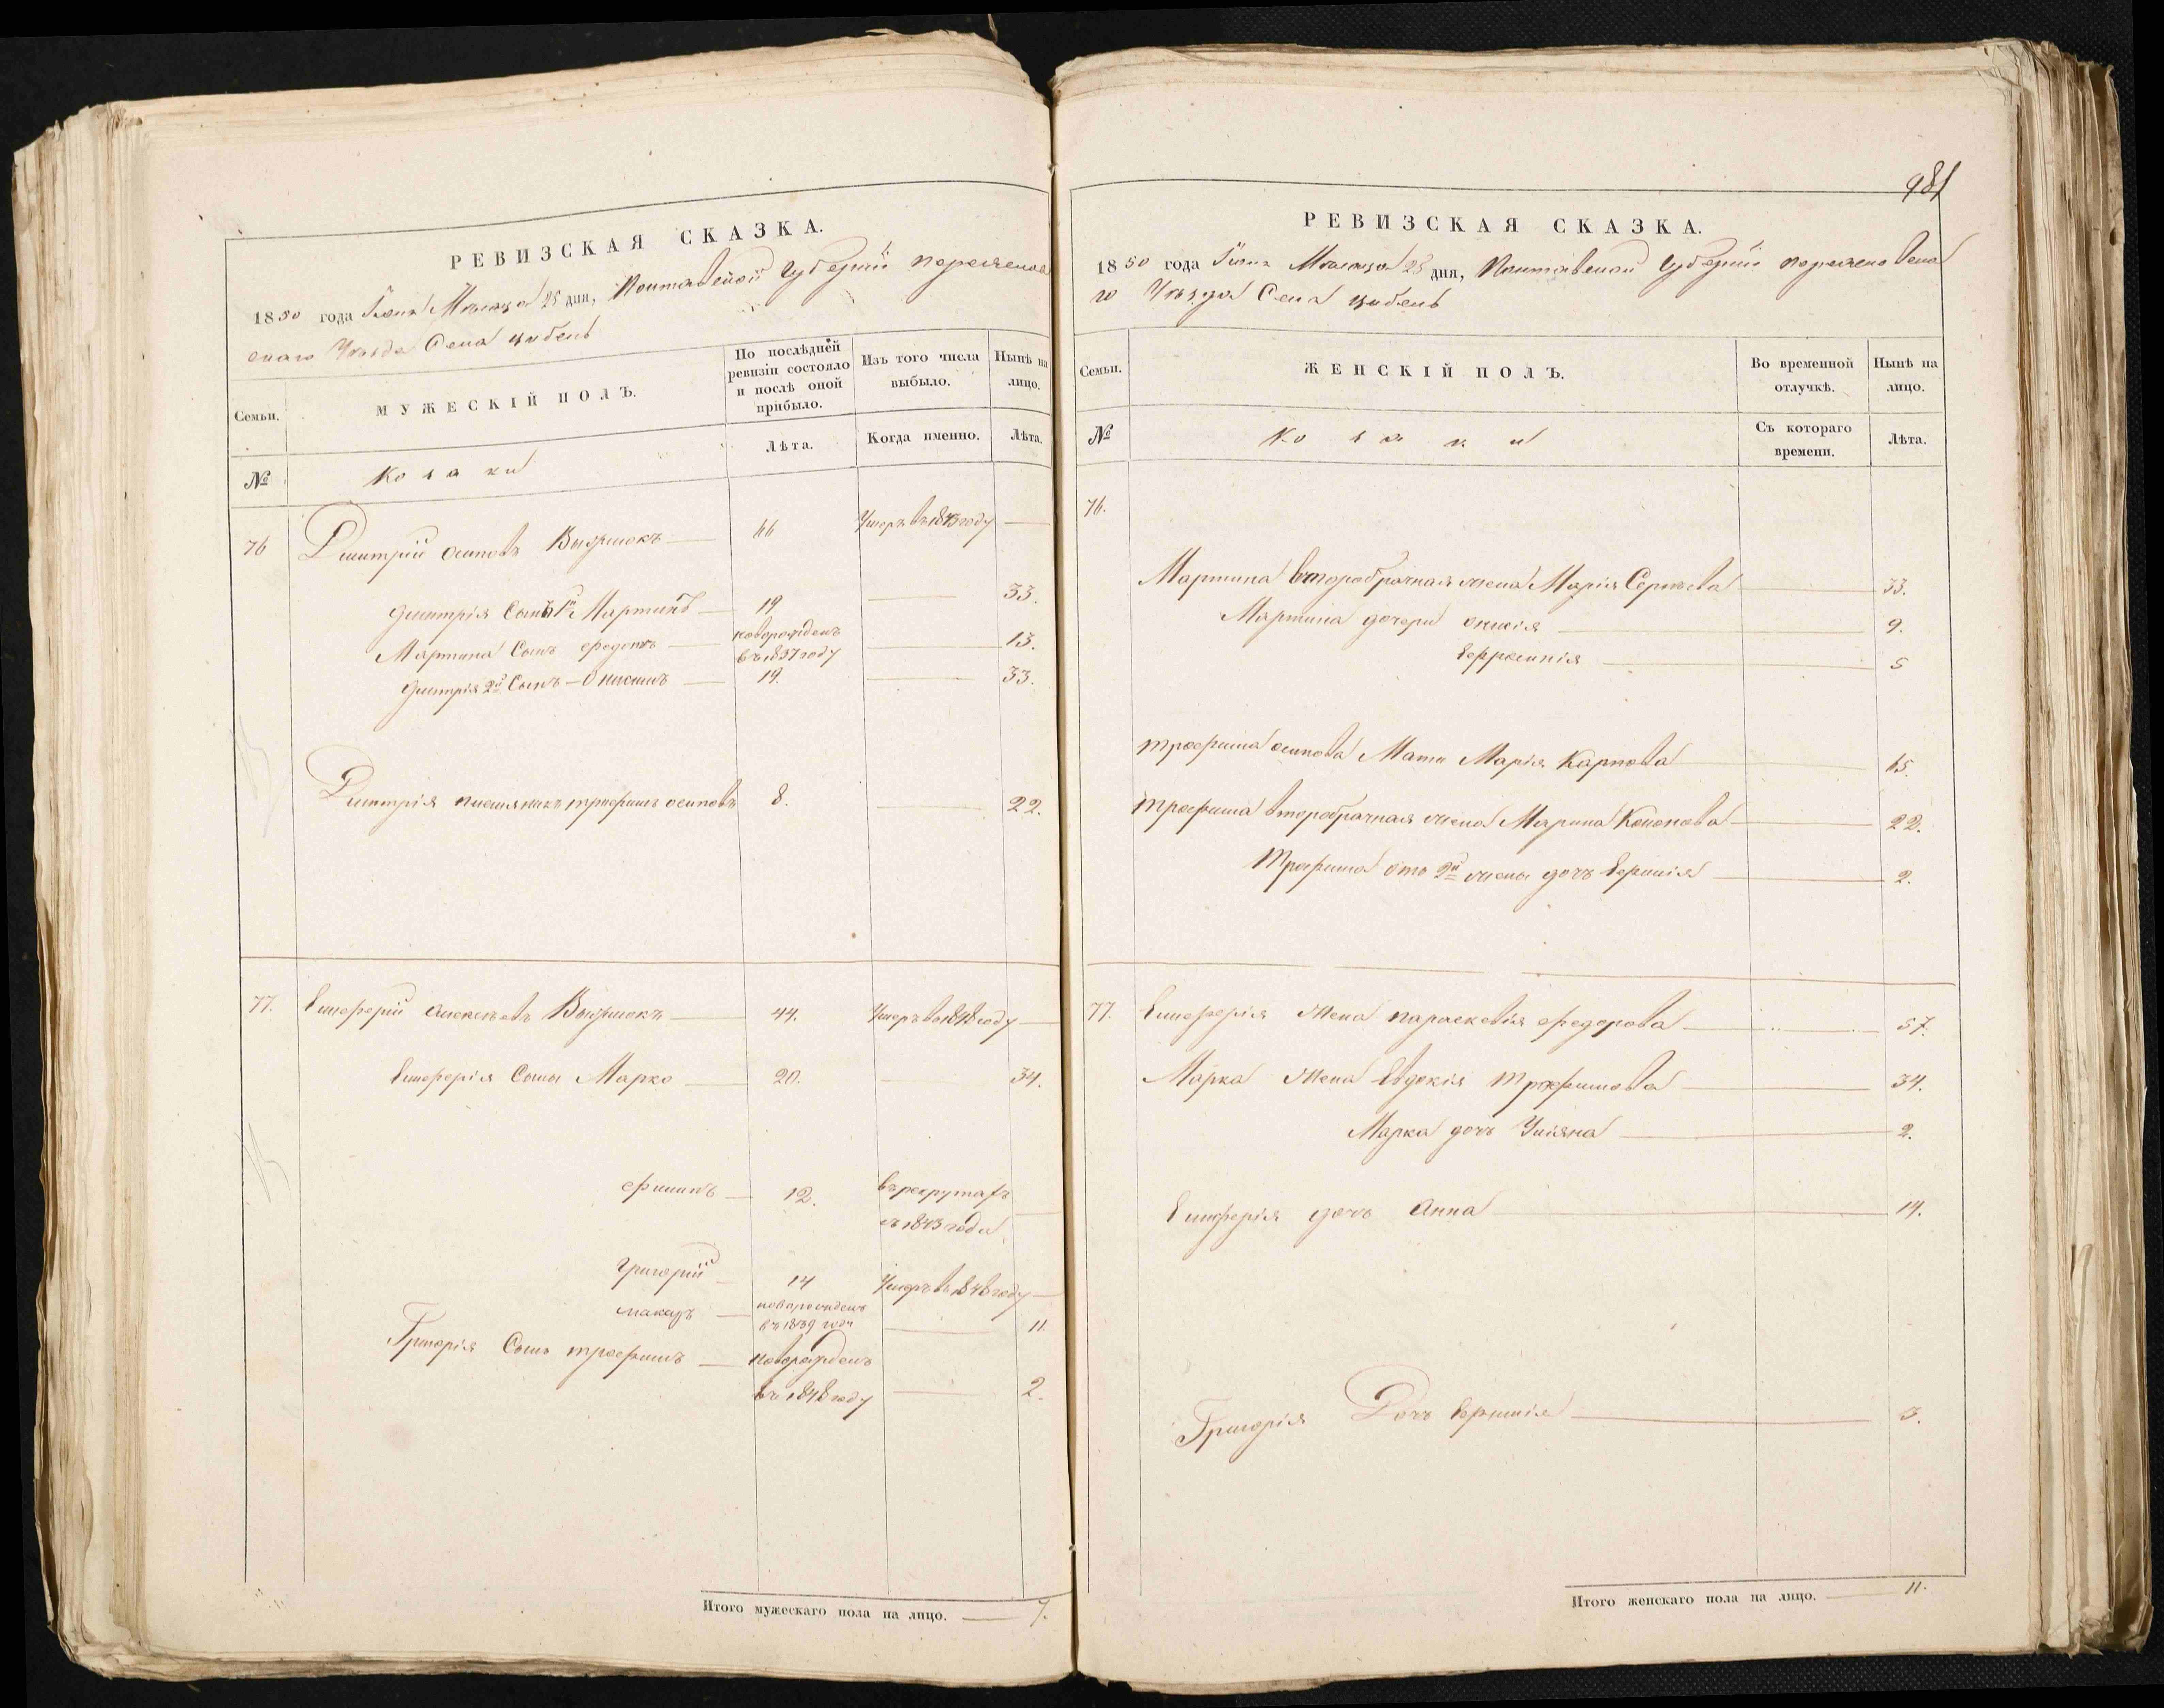 РЕВИЗСКАЯ СКАЗКА.
1850 года Іюня Месяца 25 дня, Полтавской Губерніи переяслов
скаго Уезда Села цибель
Семьи.
МУЖЕСКІЙ ПОЛЪ.
По послѣдней
ревизіи состояло
и послѣ оной
прибыло.
Изъ того числа
выбыло.
Нынѣ на
лицо.
№
Козаки
Лѣта.
Когда именно.
Лѣта.
76 Дмитрій осиповъ 46 Умеръ въ 1843 году
дмитрія Сынъ 1й Мартинъ 19 33.
Мартина Сынъ федотъ новорожденъ
въ 1837 году 13.
дмитрія 2й Сынъ Онисимъ 19. 33.
Дмитрія племяникъ трофимъ осиповъ 8. 22.
77. Елеферій алексѣевъ 44. Умеръ въ 1848 году
Елеферія Сыны Марко 20. 34.
филипъ 12. въ рекрутахъ
съ 1843 года
григорій 14 Умеръ въ 1848 году
макаръ новорожденъ
въ 1839 году 11.
Григорія Сынъ трофимъ новорожденъ
въ 1848 году 2.
Итого мужескаго пола на лицо. 7.
981
РЕВИЗСКАЯ СКАЗКА.
1850 года Іюня Месяца 25 дня, Полтавской Губерніи переясловска
го Уезда Села цибель
Семьи.
ЖЕНСКІЙ ПОЛЪ.
Во временной
отлучкѣ.
Нынѣ на
лицо.
№
Козаки
Съ котораго
времени.
Лѣта.
76.
Мартина второбрачная жена Марія Сергѣева 33.
Мартина дочери 9.
Ефросинія 5
трофима осипова Мать Марія Карпова 65.
трофима второбрачная жена Марина Кононова 22.
Трофима отъ 2й жены дочь Ефимія 2.
77. Елеферія жена параскевія федорова 57.
Марка жена Евдокія трофимова 34.
Марка дочь Уліяна 2.
Елеферія дочь Анна 14.
Григорія Дочь Ефимія 3.
Итого женскаго пола на лицо. 11.